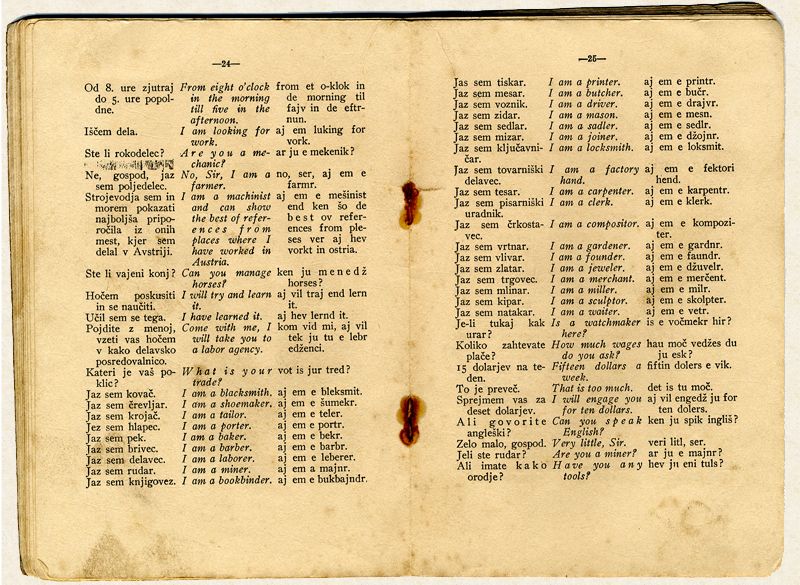 —24—
Od 8. ure zjutraj From eight o'clock from et o-klok in
do 5. ure popol- in the morning de morning til
dne. till five in the fajv in de eftr-
afternoon. nun.
Iščem dela. I am looking for aj em luking for
work. vork.
Ste li rokodelec? Are you a me- ar ju e mekenik?
chanic?
Ne, gospod, jaz No, Sir, I am a no, ser, aj em e
sem poljedelec. farmer. farmr.
Strojevodja sem in I am a machinist aj em e mešinist
morem pokazati and can show end ken šo de
najboljša pripo- the best of refer- best ov refer-
ročila iz onih ences from ences from ple-
mest, kjer sem places where I ses ver aj hev
delal v Avstriji. have worked in vorkt in ostria.
Austria.
Ste li vajeni konj? Can you manage ken ju menedž
horses? horses?
Hočem poskusiti I will try and learn aj vil traj end lern
in se naučiti. it. it.
Učil sem se tega. I have learned it. aj hev lernd it.
Pojdite z menoj, Come with me, I kom vid mi, aj vil
vzeti vas hočem will take you to tek ju tu e lebr
v kako delavsko a labor agency. edženci.
posredovalnico.
Kateri je vaš po- What is your vot is jur tred?
klic? trade?
Jaz sem kovač. I am a blacksmith. aj em e bleksmit.
Jaz sem črevljar. I am a shoemaker. aj em e šumekr.
Jaz sem krojač. I am a tailor. aj em e teler.
Jez sem hlapec. I am a porter. aj em e portr.
Jaz sem pek. I am a baker. aj em e bekr.
Jaz sem brivec. I am a barber. aj em e barbr.
Jaz sem delavec. I am a laborer. aj em e leberer.
Jaz sem rudar. I am a miner. aj em a majnr.
Jaz sem knjigovez. I am a bookbinder. aj em e bukbajndr.
—25—
Jas sem tiskar. I am a printer. aj em e printr.
Jaz sem mesar. I am a butcher. aj em e bučr.
Jaz sem voznik. I am a driver. aj em e drajvr.
Jaz sem zidar. I am a mason. aj em e mesn.
Jaz sem sedlar. I am a sadler. aj em e sedlr.
Jaz sem mizar. I am a joiner. aj em e džojnr.
Jaz sem ključavni- I am a locksmith. aj em e loksmit.
čar.
Jaz sem tovarniški I am a factory aj em e fektori
delavec. hand. hend.
Jaz sem tesar. I am a carpenter. aj em e karpentr.
Jaz sem pisarniški I am a clerk. aj em e klerk.
uradnik.
Jaz sem črkosta- I am a compositor. aj em e kompozi-
vec. ter.
Jaz sem vrtnar. I am a gardener. aj em e gardnr.
Jaz sem vlivar. I am a founder. aj em e faundr.
Jaz sem zlatar. I am a jeweler. aj em e džuvelr.
Jaz sem trgovec. I am a merchant. aj em e merčent.
Jaz sem mlinar. I am a miller. aj em e milr.
Jaz sem kipar. I am a sculptor. aj em e skolpter.
Jaz sem natakar. I am a waiter. aj em e vetr.
Je-li tukaj kak Is a watchmaker is e vočmekr hir?
urar? here?
Koliko zahtevate How much wages hau moč vedžes du
plače? do you ask? ju esk?
15 dolarjev na te- Fifteen dollars a fiftin dolers e vik.
den. week.
To je preveč. That is too much. det is tu moč.
Sprejmem vas za I will engage you aj vil engedž ju for
deset dolarjev. for ten dollars. ten dolers.
Ali govorite Can you speak ken ju spik ingliš?
angleški? English?
Zelo malo, gospod. Very little, Sir. veri litl, ser.
Jeli ste rudar? Are you a miner? ar ju e majnr?
Ali imate kako Have you any hev ju eni tuls?
orodje? tools?